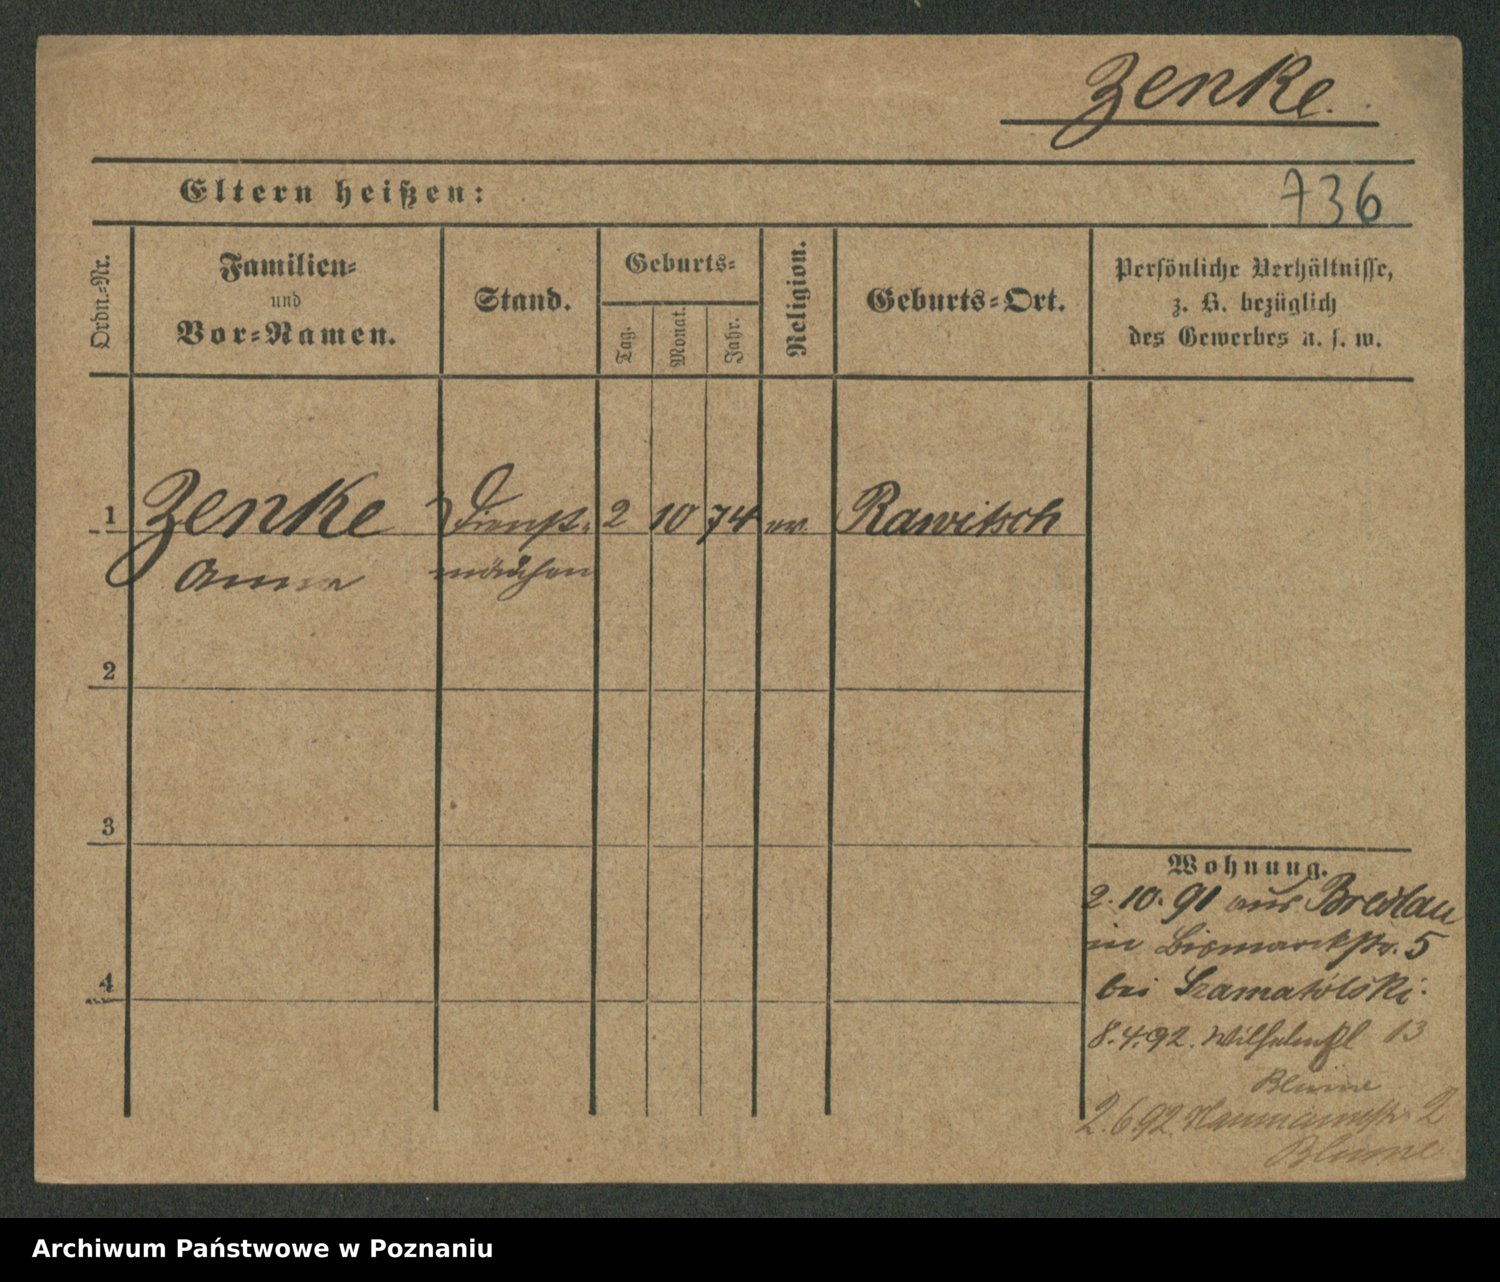 Zenke.
Eltern heißen:
736
Ordn.-Nr.
Familien-
und
Vor-Namen.
Stand.
Geburts-
Tag.
Monat.
Jahr.
Religion.
Geburts-Ort.
Persönliche Verhältnisse,
z. B. bezüglich
des Gewerbes u. s. w.
1 Zenke Dienst- 2 10 74 ev. Rawitsch
Anna mädchen
2
3
4
Wohnung.
2.10.91 aus Breslau
in Bismarckstr. 5
bei Szamatolski.
8.4.92. Wilhelmspl 13
Blume
2.6.92. Naumannstr. 2
Blume
Archiwum Państwowe w Poznaniu